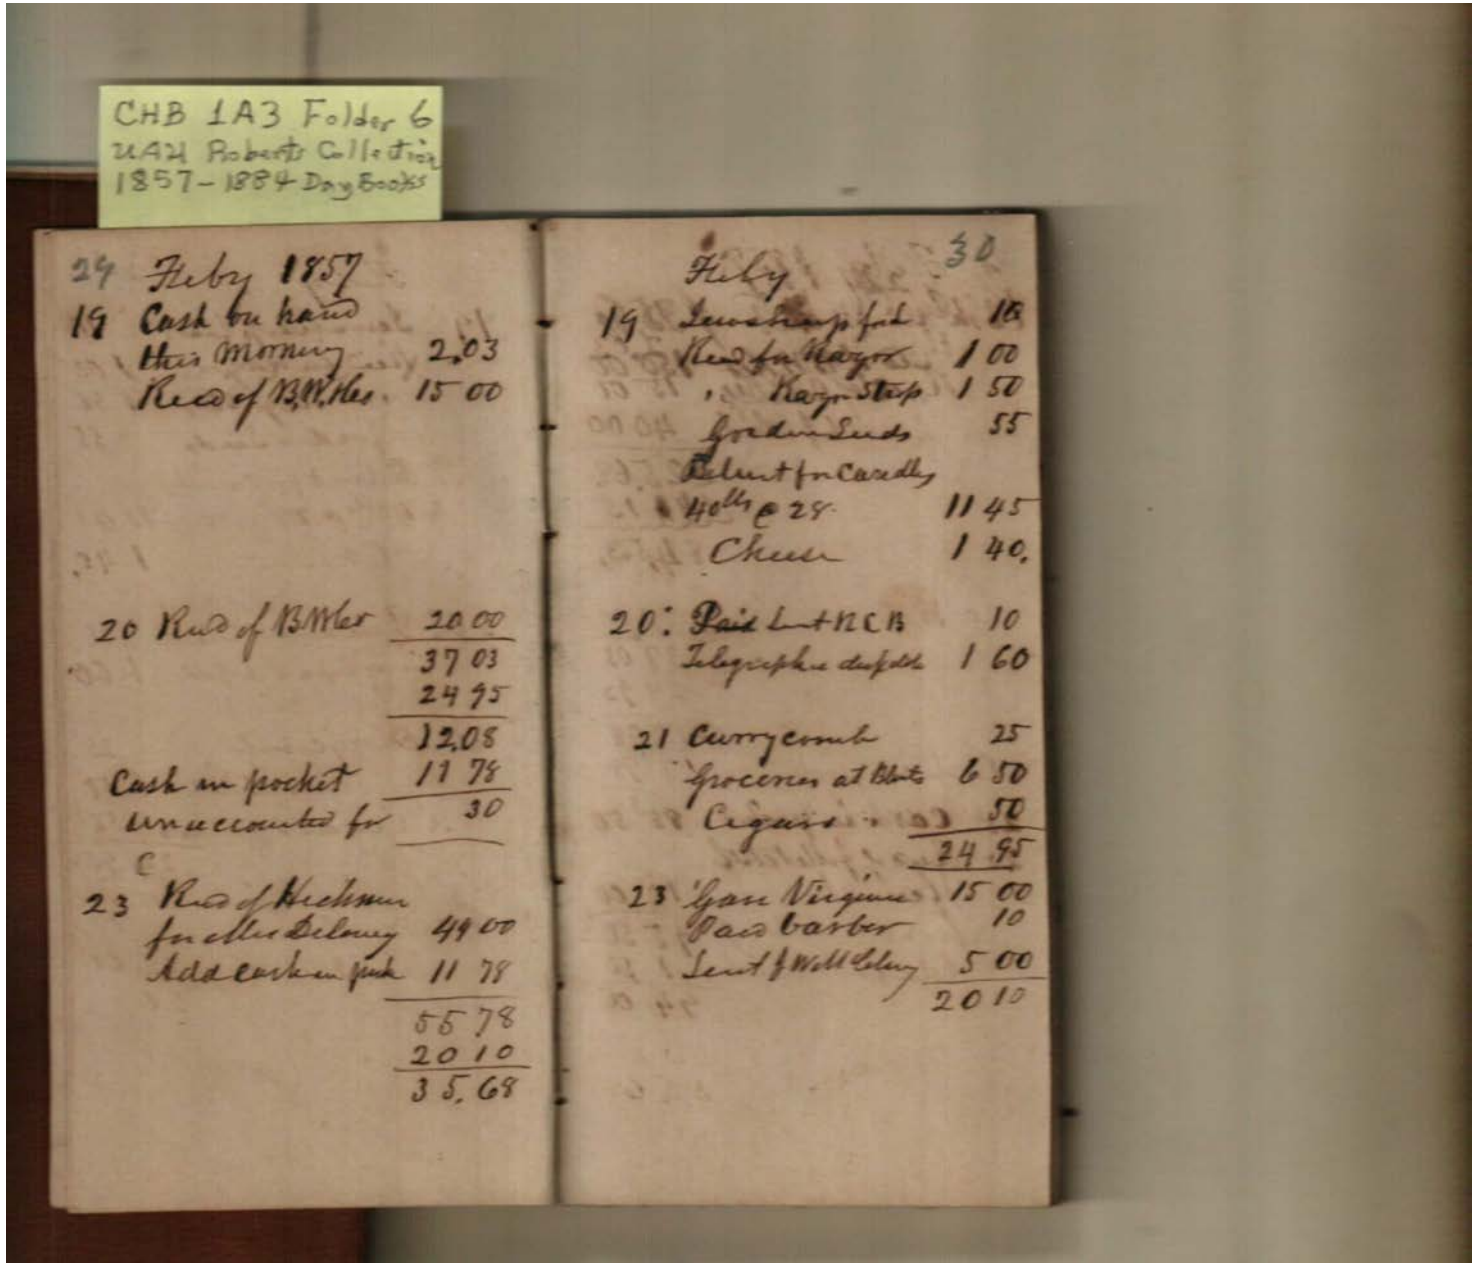 CHB 1A3 Folder 6
UAH Roberts Collection
1857-1884 Day Books
29 Feby 1857
19 Cash on hand
this Morning 2.03
Recd of B.W. 15 00
20 Recd of 20 00
37 03
24 95
12.08
Cash in pocket 11 78
unaccounted for 30
C
23 Recd of Hickman
for Delaney 44 00
Add cash in 11 78
55 78
20 10
35.68
30
Feby
19 10
for Razor 1 00
" Razor Strop 1 50
Garden Seeds 55
for Candles
40 lbs @ 28 11 45
Cheese 1 40.
20. Paid 10
Telegraphic 1 60
21 Currycomb 25
Groceries at 6 50
Cigars 50
24 95
23 Gave Virginia 15 00
Paid barber 10
5 00
20 10